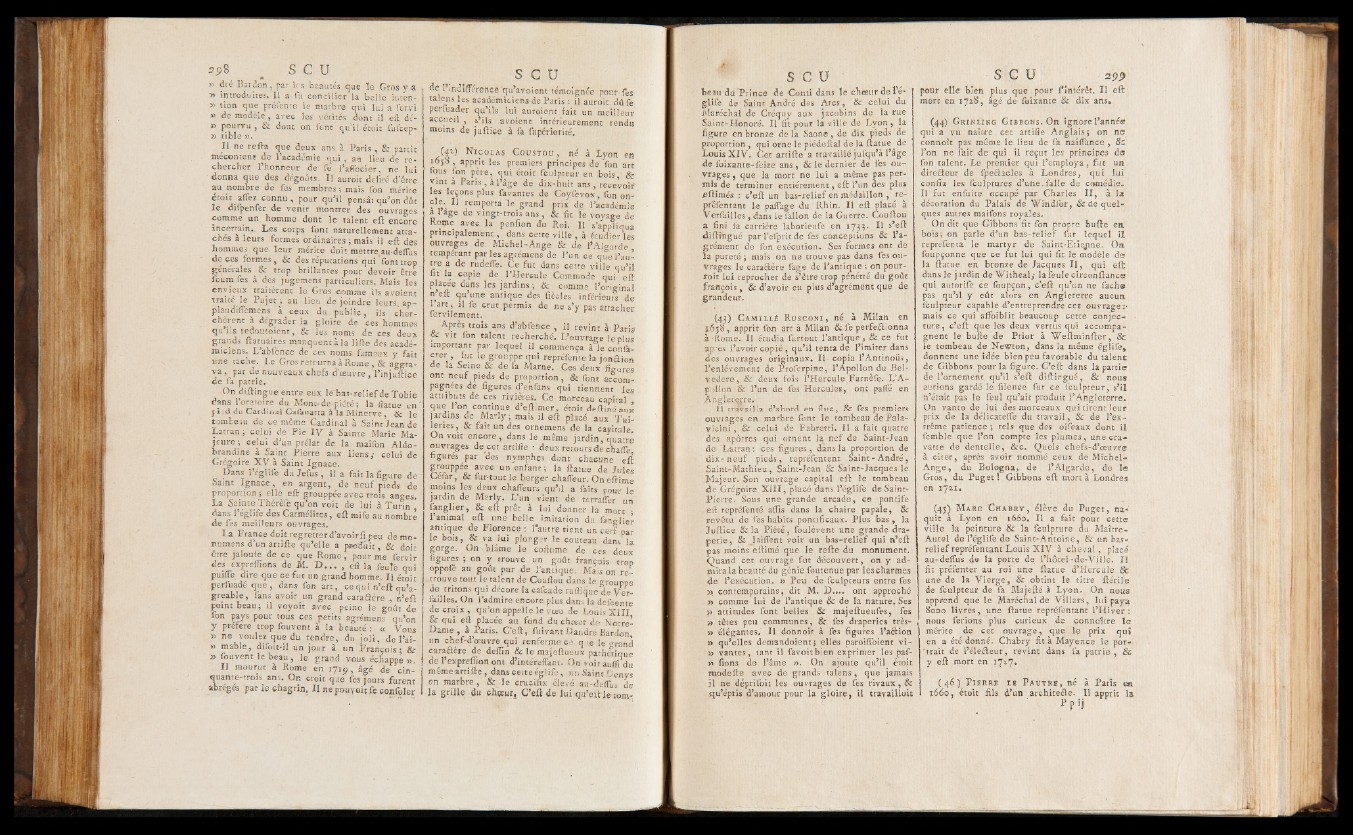 298 S C U
» dré Bardon, par les beautés que le Gros y a
» introduites. Il a su concilier la belle inten-
» tion que présente le marbre qui lui a servi
» de modèle, avec les vérités dont il est dé-
» pourvu, & dont on sent qu'il étoit suscep-
» tible ».
Il ne resta que deux ans à Paris, & partit
mécontent de l'académie qui, au lieu de re-
chercher l'honneur de se l'associer, ne lui
donna que des dégoûts. Il auroit desiré d'être
au nombre de ses membres; mais son mérite
étoit assez connu, pour qu'il pensât qu'on dût
le dispenser de venir montrer des ouvrages
comme un homme dont le talent est encore
incertain. Les corps sont naturellement atta-
chés à leurs formes ordinaires; mais il est des
hommes que leur mérite doit mettre au-dessus
de ces formes, & des réputations qui sont trop
générales & trop brillantes pour devoir être
soumises à des jugemens particuliers. Mais les
envieux traitèrent le Gros comme ils avoient
traité le Pujet; au lieu de joindre leurs ap-
plaudissemens à ceux du public, ils cher-
chèrent à dégrader la gloire de ces hommes
qu'ils redoutoient, & les noms de ces deux
grands statuaires manquent à la liste des acadé-
miciens. L'absence de ces noms fameux y fait
une tache. Le Gros retourna à Rome, & aggra-
va, par de nouveaux chefs d'œuvre, l'injustice
de sa patrie.
On distingue entre eux le bas-relief de Tobie
dans l'oratoire du Mont-de-piété; la statue en
pied du Cardinal Casanatta à la Minerve, & le
tombeau de ce même Cardinal à Saint Jean de
Latran; celui de Pie IV à Sainte Marie Ma-
jeure; celui d'un prélat de la maison Aldo-
brandine à Saint Pierre aux liens; celui de
Grégoire XV à Saint Ignace.
Dans l'église du Jesus, il a fait la figure de
Saint Ignace, en argent, de neuf pieds de
proportion; elle est grouppée avec trois anges.
La Sainte Thérèse qu'on voit de lui à Turin,
dans l'église des Carmélites, est mise au nombre
de ses meilleurs ouvrages.
La France doit regretter d'avoir si peu de mo-
numens d'un artiste qu'elle a produit, & doit
être jalouse de ce que Rome, pour me servir
des expressions de M. D..., est la seule qui
puisse dire que ce fut un grand homme. Il étoit
persuadé que, dans son art, ce qui n'est qu'a-
gréable, sans avoir un grand caractère, n'est
point beau; il voyoit avec peine le goût de
son pays pour tous ces petits agrémens qu'on
y préfère trop souvent à la beauté: « Vous
» ne voulez que du tendre, du joli, de l'ai-
» mable, disoit-il un jour à un François; &
» souvent le beau, le grand vous échappe ».
Il mourut à Rome en 1719, âgé de cin-
quante-trois ans. On croit que ses jours furent
abrégés par le chagrin, Il ne pouvoit se consoler
S C U
de l'indifférence qu'avoient témoignée pour ses
talens les académiciens de Paris: il auroit dû se
persuader qu'ils lui auroient fait un meilleur
accueil, s'ils avoient intérieurement rendu
moins de justice à sa supériorité.
(42) NICOLAS COUSTOU, né à Lyon en
1658, apprit les premiers principes de son art
sous son père, qui étoit sculpteur en bois, &
vint à Paris, à l'âge de dix-huit ans, recevoir
les leçons plus savantes de Coysevox, son on-
cle. Il remporta le grand prix de l'académie
à l'âge de vingt-trois ans, & fit le voyage de
Rome avec la pension du Roi. Il s'appliqua
principalement, dans cette ville, à étudier les
ouvrages de Michel-Ange & de l'Algarde,
tempérant par les agrémens de l'un ce que l'au-
tre a de rudesse. Ce fut dans cette ville qu'il
fit la copie de l'Hercule Commode qui est
placée dans les jardins; & comme l'original
n'est qu'une antique des siècles inférieurs de
l'art, il se crut permis de ne s'y pas attacher
servilement.
Après trois ans d'absence, il revint à Paris
& vit son talent recherché. L'ouvrage le plus
important par lequel il commença à se consa-
crer, fut le grouppe qui représente la jonction
de la Seine & de la Marne. Ces deux figures
ont neuf pieds de proportion, & sont accom-
pagnées de figures d'enfans qui tiennent les
attributs de ces rivières. Ce morceau capital,
que l'on continue d'estimer, étoit destiné aux
jardins de Marly; mais il est placé aux Tui-
leries, & fait un des ornemens de la capitale.
On voit encore, dans le même jardin, quatre
ouvrages de cet artiste: deux retours de chasse,
figurés par des nymphes dont chacune est
grouppée avec un enfant; la statue de Jules
César, & sur-tout le berger chasseur. On estime
moins les deux chasseurs qu'il a faits pour le
jardin de Marly. L'un vient de terrasser un
sanglier, & est prêt à lui donner la mort;
l'animal est une belle imitation du sanglier
antique de Florence: l'autre tient un cerf par
le bois, & va lui plonger le couteau dans la
gorge. On blâme le costume de ces deux
figures; on y trouve un goût françois trop
opposé au goût pur de l'antique. Mais on re-
trouve tout le talent de Coustou dans le grouppe
de tritons qui décore la cascade rustique de Ver-
sailles. On l'admire encore plus dans la descente
de croix, qu'on appelle le vœu de Louis XIII,
& qui est placée au fond du chœur de Notre-
Dame, à Paris. C'est, suivant Dandré Bardon,
un chef-d'œuvre qui renferme ce que le grand
caractère de dessin & le majestueux pathétique
de l'expression ont d'intéressant. On voit aussi du
même artiste, dans cette église, un Saint Denys
en marbre, & le crucifix élevé au-dessus de
la grille du chœur. C'est de lui qu'est le tom-
S C U
beau du Prince de Conti dans le chœur de l'é-
glise de Saint André des Arcs, & celui du
Maréchal de Créquy aux jacobins de la rue
Saint-Honoré. Il fit pour la ville de Lyon, la
figure en bronze de la Saone, de dix pieds de
proportion, qui orne le piédestal de la statue de
Louis XIV. Cet artiste a travaillé jusqu'à l'âge
de soixante-seize ans, & le dernier de ses ou-
vrages, que la mort ne lui a même pas per-
mis de terminer entiérement, est l'un des plus
estimés: c'est un bas-relief en médaillon, re-
présentant le passage du Rhin. Il est placé à
Versailles, dans le sallon de la Guerre. Coustou
a fini sa carrière laborieuse en 1733. Il s'est
distingué par l'esprit de ses conceptions & l'a-
grément de son exécution. Ses formes ont de
la pureté; mais on ne trouve pas dans ses ou-
vrages le caractère sage de l'antique: on pour-
roit lui reprocher de s'être trop pénétré du goût
françois, & d'avoir eu plus d'agrément que de
grandeur.
(43) CAMILLE RUSCONI, né à Milan en
1658, apprit son art à Milan & se perfectionna
à Rome. Il étudia surtout l'antique, & ce fut
après l'avoir copié, qu'il tenta de l'imiter dans
des ouvrages originaux. Il copia l'Antinoüs,
l'enlévement de Proserpine, l'Apollon du Bel-
vedere, & deux fois l'Hercule Farnèse. L'A-
pollon & l'un de ses Hercules, ont passé en
Angleterre.
Il travailla d'abord en stuc, & ses premiers
ouvrages en marbre sont le tombeau de Pala-
vicini, & celui de Fabretti. Il a fait quatre
des apôtres qui ornent la nef de Saint-Jean
de Latran: ces figures, dans la proportion de
dix-neuf pieds, représentent Saint-André,
Saint-Mathieu, Saint-Jean & Saint-Jacques le
Majeur. Son ouvrage capital est le tombeau
de Grégoire XIII, placé dans l'église de Saint-
Pierre. Sous une grande arcade, ce pontife
est représenté assis dans la chaire papale, &
revêtu de ses habits pontificaux. Plus bas, la
Justice & la Piété, soulévent une grande dra-
perie, & laissent voir un bas-relief qui n'est
pas moins estimé que le reste du monument.
Quand cet ouvrage fut découvert, on y ad-
mira la beauté du génie soutenue par les charmes
de l'exécution. » Peu de sculpteurs entre ses
» contemporains, dit M. D.... ont approché
» comme lui de l'antique & de la nature. Ses
» attitudes sont belles & majestueuses, ses
» têtes peu communes, & ses draperies très-
» élégantes. Il donnoit à ses figures l'action
» qu'elles demandoient; elles paroissoient vi-
» vantes, tant il savoit bien exprimer les pas-
» sions de l'âme ». On ajoute qu'il étoit
modeste avec de grands talens, que jamais
il ne déprisoit les ouvrages de ses rivaux, &
qu'épris d'amour pour la gloire, il travailloit
S C U 299
pour elle bien plus que pour l'intérêt. Il est
mort en 1728, âgé de soixante & dix ans.
(44) GRINLING GIBBONS. On ignore l'année
qui a vu naître cet artiste Anglais; on ne
connoît pas même le lieu de sa naissance, &
l'on ne sait de qui il reçut les principes de
son talent. Le premier qui l'employa, fut un
directeur de spectacles à Londres, qui lui
confia les sculptures d'une salle de comédie.
Il fut ensuite occupé par Charles II, à la
décoration du Palais de Windsor, & de quel-
ques autres maisons royales.
On dit que Gibbons fit son propre buste en
bois; on parle d'un bas-relief sur lequel il
représenta le martyr de Saint-Etienne. On
soupçonne que ce fut lui qui fit le modèle de
la statue en bronze de Jacques II, qui est
dans le jardin de Witheal; la seule circonstance
qui autorise ce soupçon, c'est qu'on ne sache
pas qu'il y eût alors en Angleterre aucun
sculpteur capable d'entreprendre cet ouvrage:
mais ce qui affoiblit beaucoup cette conjec-
ture, c'est que les deux vertus qui accompa-
gnent le buste de Prior à Westminster, &
le tombeau de Newton, dans la même église,
donnent une idée bien peu favorable du talent
de Gibbons pour la figure. C'est dans la partie
de l'ornement qu'il s'est distingué, & nous
aurions gardé le silence sur ce sculpteur, s'il
n'étoit pas le seul qu'ait produit l'Angleterre.
On vante de lui des morceaux qui tirent leur
prix de la délicatesse du travail, & de l'ex-
trême patience; tels que des oiseaux dont il
semble que l'on compte les plumes, une cra-
vatte de dentelle, &c. Quels chefs-d'œuvre
à citer, après avoir nommé ceux de Michel-
Ange, du Bologna, de l'Algarde, de le
Gros, du Puget! Gibbons est mort à Londres
en 1721.
(45) MARC CHABRY, élève du Puget, na-
quit à Lyon en 1660. Il a fait pour cette
ville la peinture & la sculpture du Maître-
Autel de l'église de Saint-Antoine, & un bas-
relief représentant Louis XIV à cheval, placé
au-dessus de la porte de l'hôtel-de-Ville. Il
fit présenter au roi une statue d'Hercule &
une de la Vierge, & obtint le titre stérile
de sculpteur de sa Majesté à Lyon. On nous
apprend que le Maréchal de Villars, lui paya
8000 livres, une statue représentant l'Hiver:
nous serions plus curieux de connoître le
mérite de cet ouvrage, que le prix qui
en a été donné. Chabry fit à Mayence le por-
trait de l'électeur, revint dans sa patrie, &
y est mort en 1727.
(46) PIERRE LE PAUTRE, né à Paris en
1660, étoit fils d'un architecte. Il apprit la
P p ij